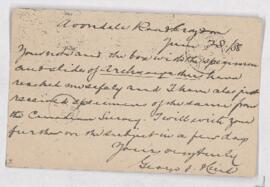 Avondale Road Croydon
June 28/88
Your note and the box with the specimen
and slides of Archaeo this have
reached me safely and I have also just
received specimens of the same from
the Canadian Survey. I will write you
further on the subject in a few days
Yours very truly
George J Hinde